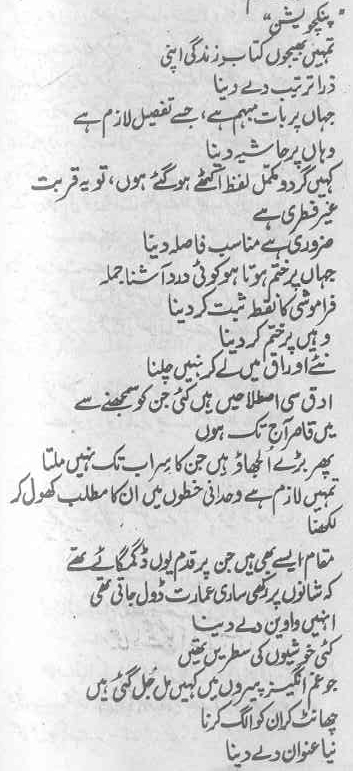 "پنکچویشن"
تمہیں بھیجوں کتابِ زندگی اپنی
ذرا ترتیب دے دینا
جہاں پر بات مبہم ہے، جسے تفصیل لازم ہے
وہاں پر حاشیہ دینا
کہیں گر دو مکمل لفظ اکٹھے ہو گئے ہوں، تو یہ قربت
غیر فطری ہے
ضروری ہے مناسب فاصلہ دینا
جہاں پر ختم ہوتا ہو کوئی درد آشنا جملہ
فراموشی کا نقطہ ثبت کر دینا
وہیں پر ختم کر دینا
نئے اوراق میں لے کر نہیں چلنا
ادق سی اصطلاحیں ہیں کئی جن کو سمجھنے سے
میں قاصر آج تک ہوں
پھر بڑے الجھاؤ ہیں جن کا سِرا اب تک نہیں ملتا
تمہیں لازم ہے وحدانی خطوں میں ان کا مطلب کھول کر
لکھنا
مقام ایسے بھی ہیں جن پر قدم یوں ڈگمگائے تھے
کہ شانوں پر رکھی ساری عمارت ڈول جاتی تھی
انہیں واوین دے دینا
کئی خوشیوں کی سطریں تھیں
جو غم انگیز پیروں میں کہیں مل جل گئی ہیں
چھانٹ کر ان کو الگ کرنا
نیا عنوان دے دینا